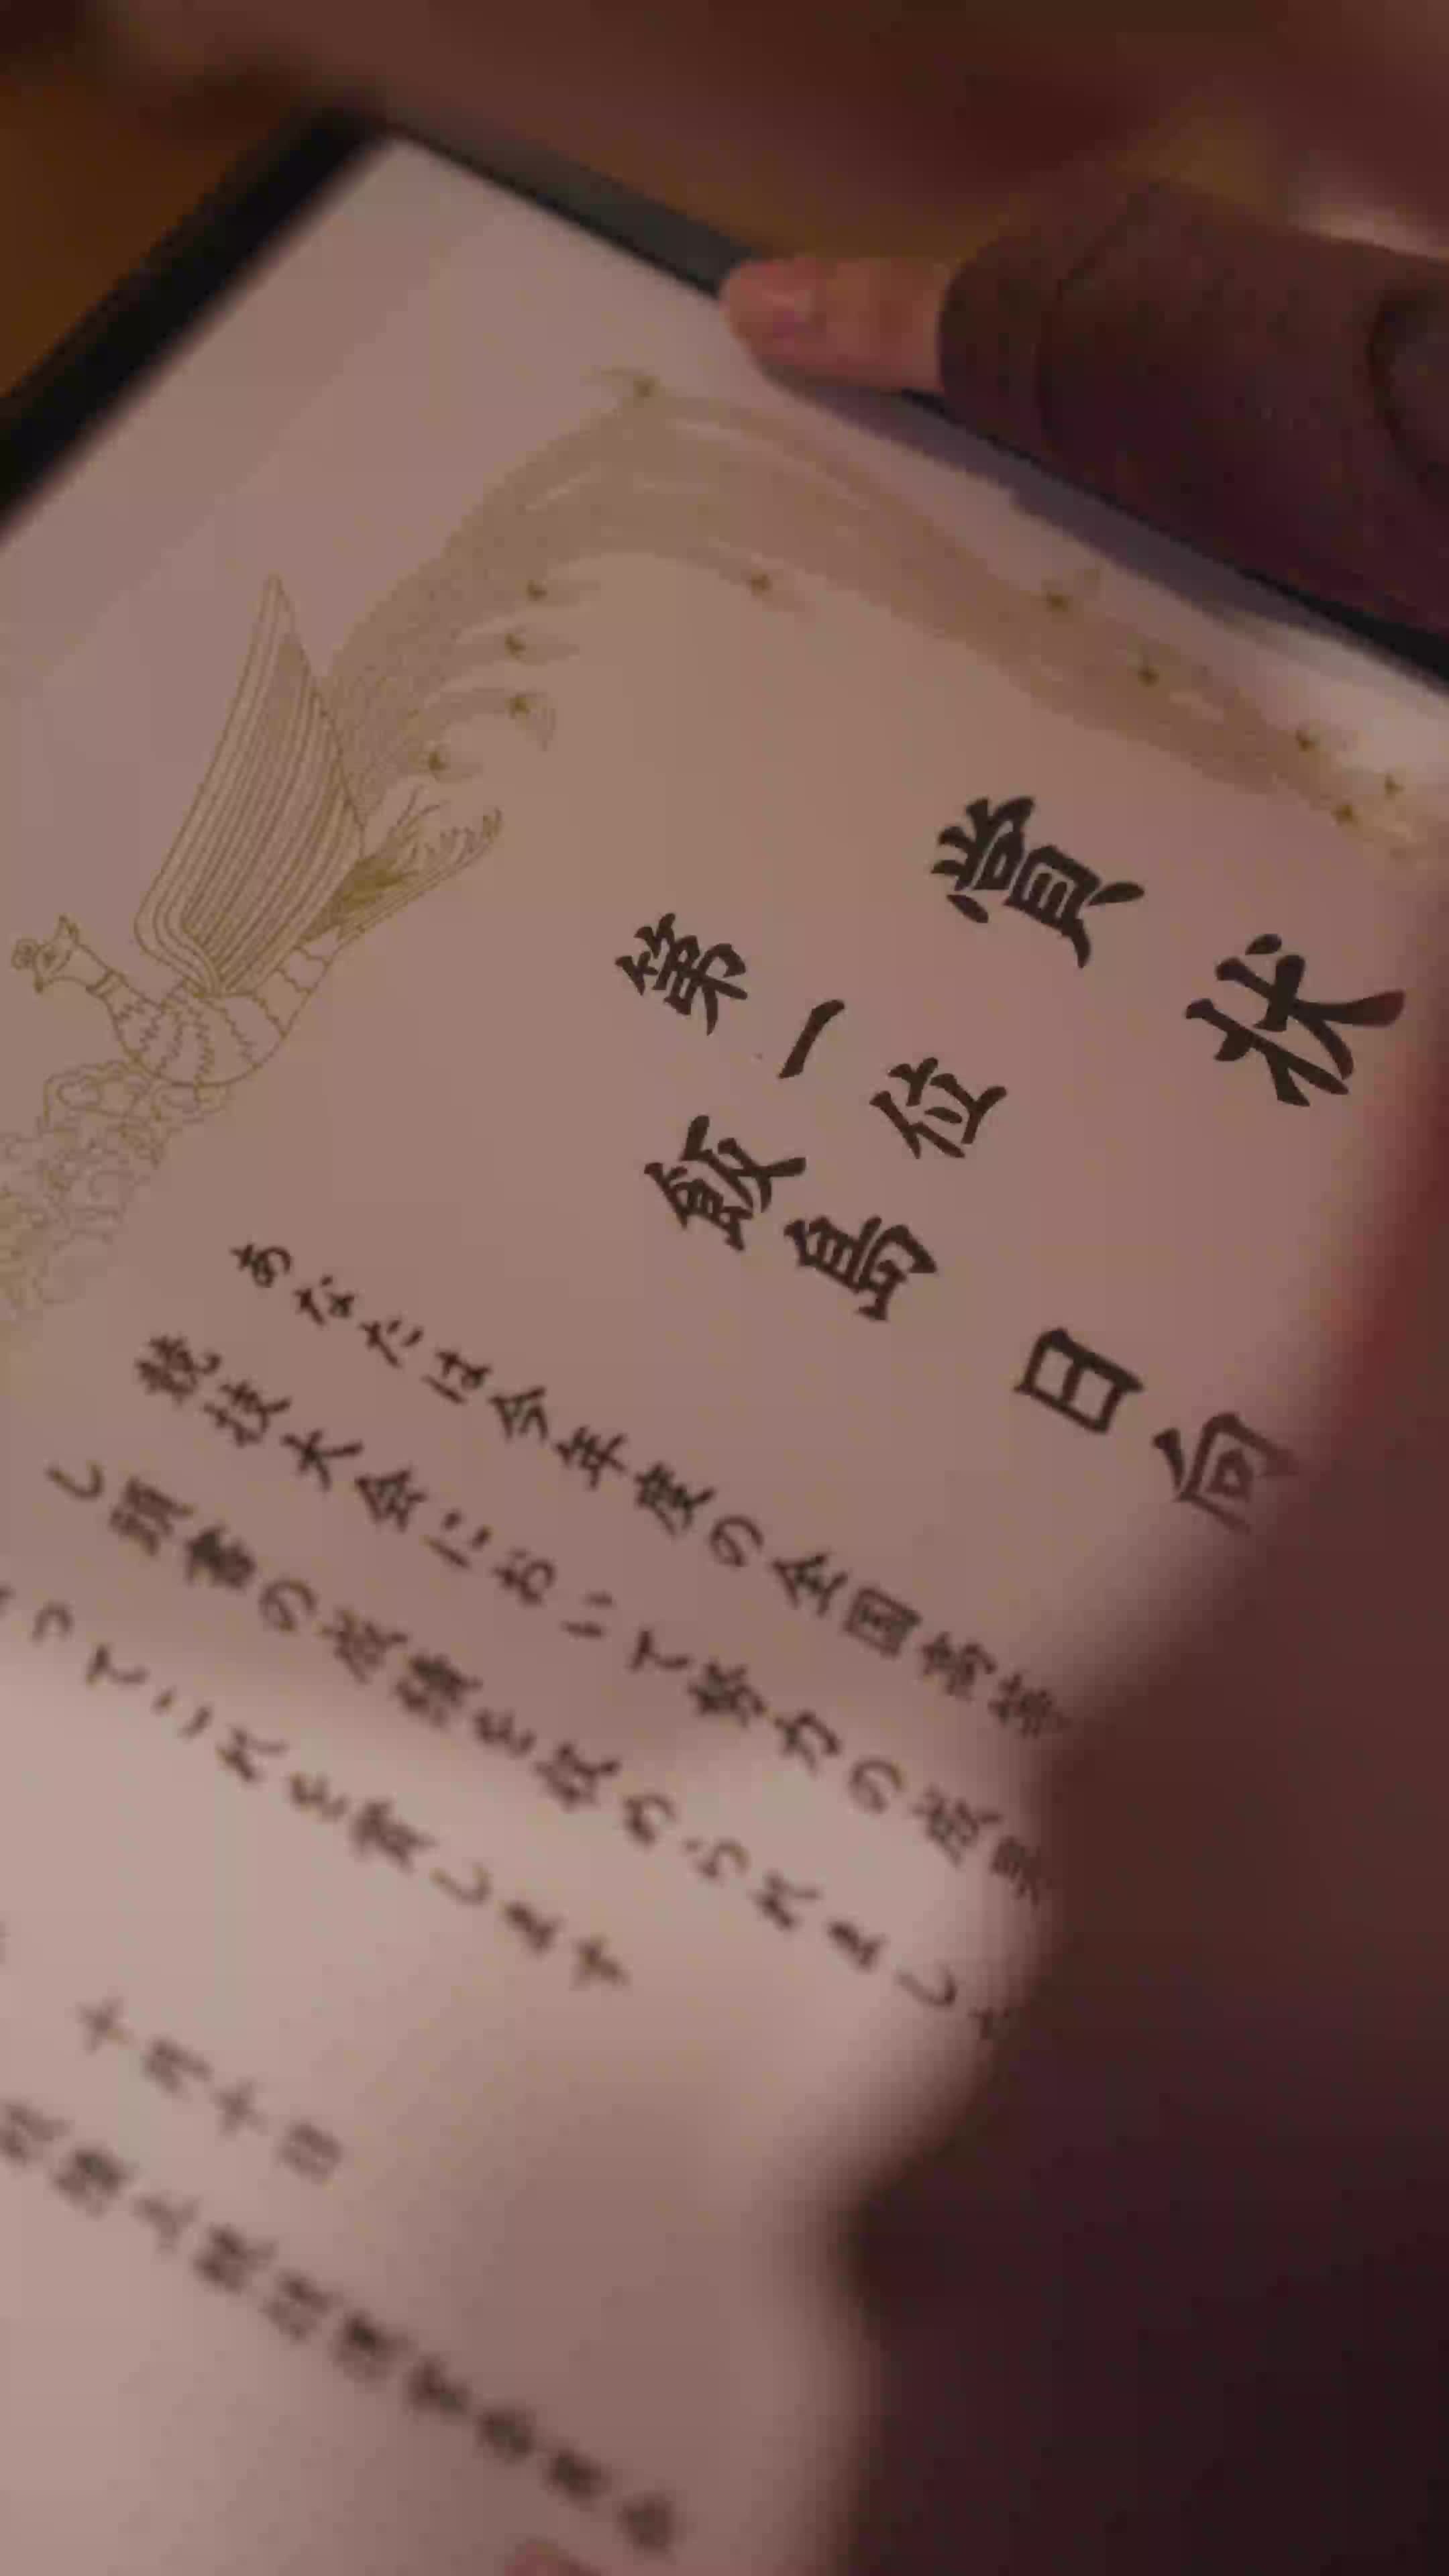 賞状
第一位
飯島日向
あなたは今年度の全国高等
競技大会において努力の成果
し頭書の成績を収められました
ってこれを賞します
十月十日